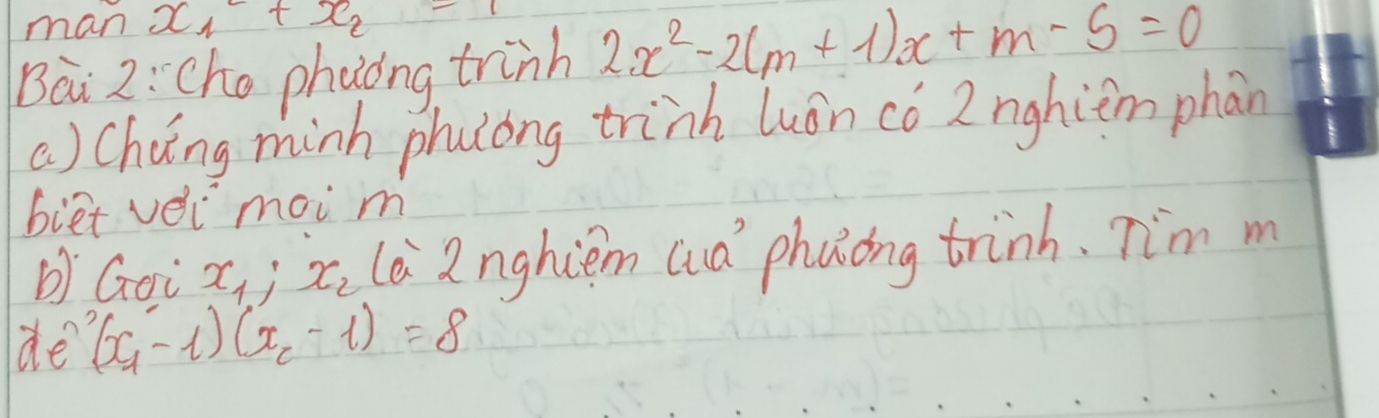 mãn x₁² + x₂
Bài 2: Cho phương trình 2x² - 2(m + 1)x + m - 5 = 0
a) Chứng minh phương trình luôn có 2 nghiệm phân
biệt với mọi m
b) Gọi x₁; x₂ là 2 nghiệm của phương trình. Tìm m
để (x₁ - 1)(x₂ - 1) = 8